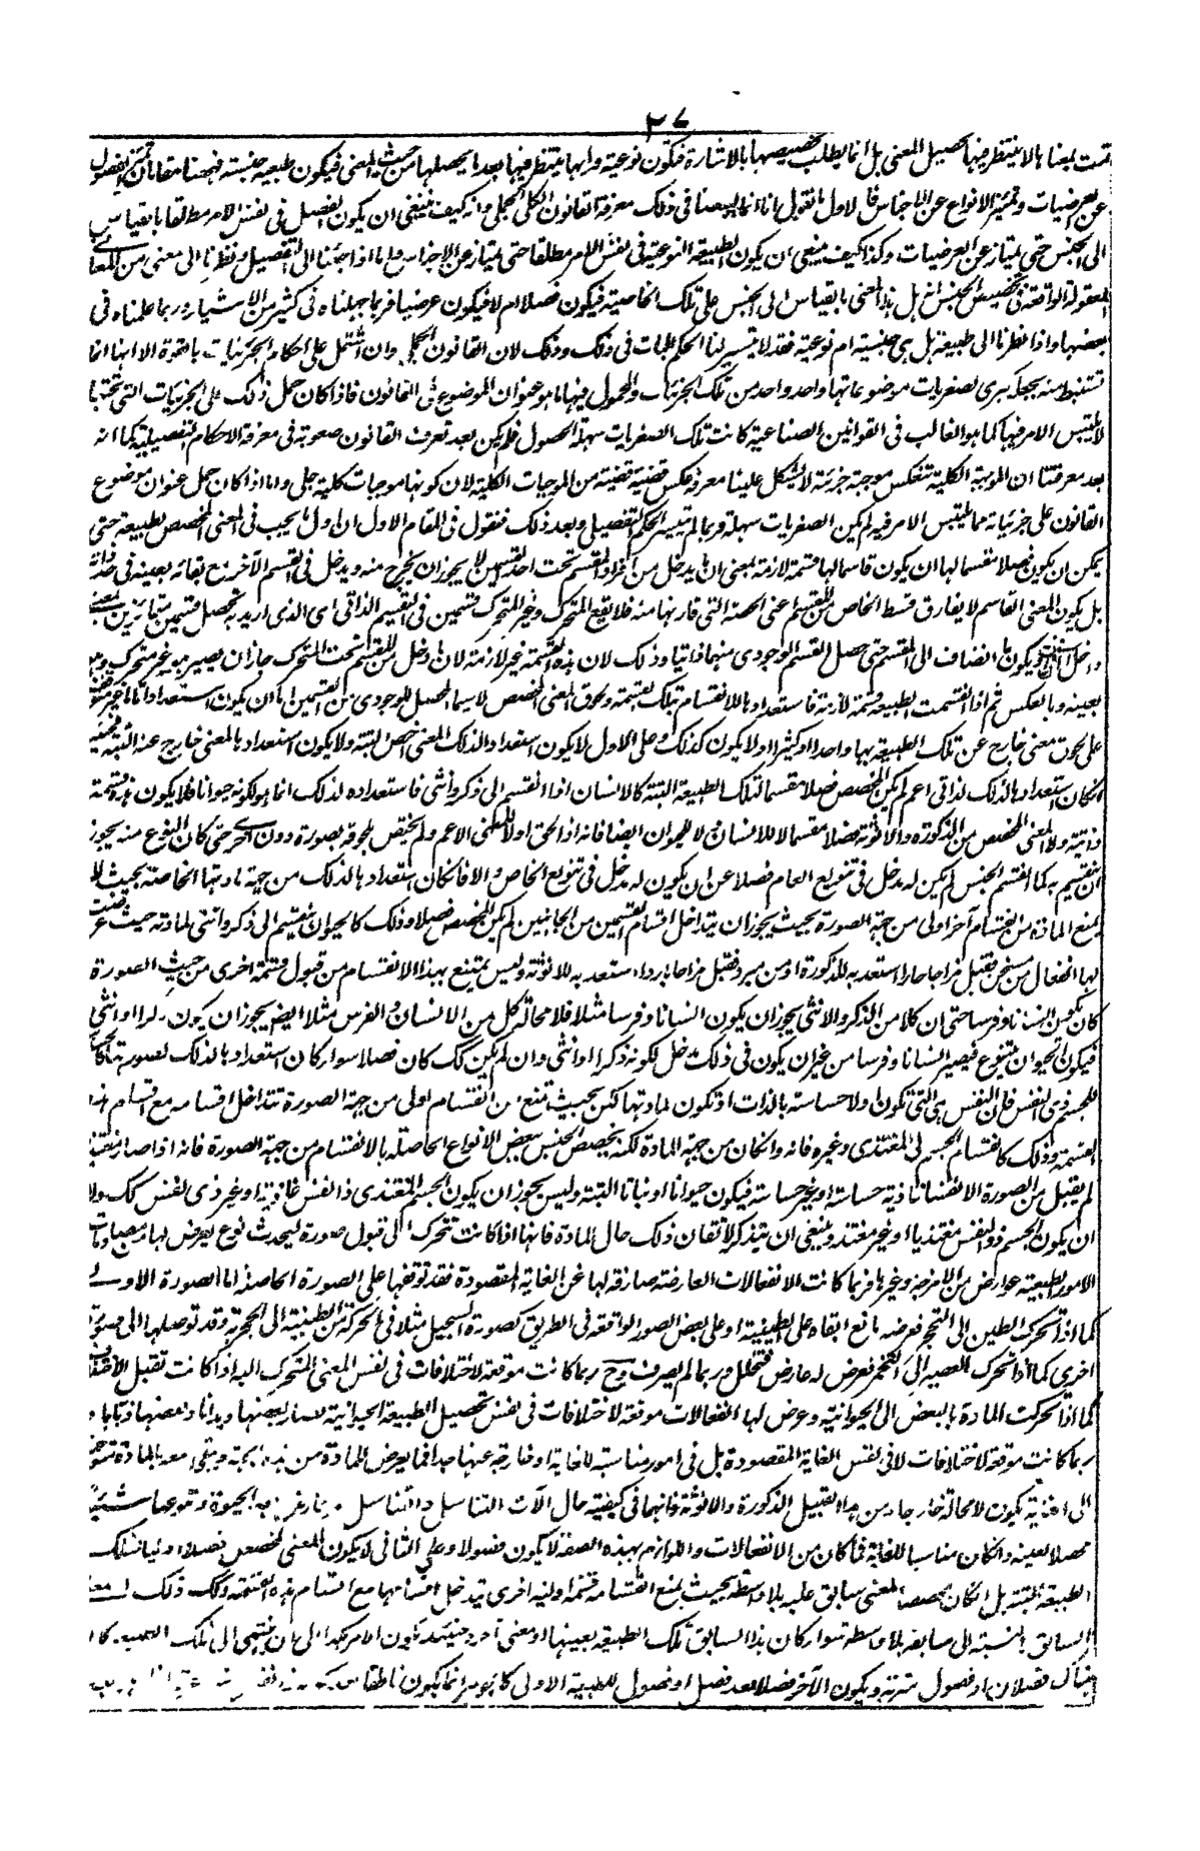 ٣٧
تمت بمعناها لا ينتظر فيها تحصيل المعنى بل انما يطلب تخصيصها بالاشارة فتكون نوعية وايها ينتظر فيها بعد تحصلها من حيث المعنى فيكون طبيعة جنسية فههنا مقامان تميز الفصول
عن العرضيات وتميز الانواع عن الاجناس فالاول ما نقول انا انما يسعنا في ذلك معرفة القانون الكلى المجمل وانه كيف ينبغى ان يكون الفصل في نفس الامر مطلقا بالقياس
الى الجنس حتى يمتاز عن العرضيات وكذا كيف ينبغى ان يكون الطبيعة النوعية في نفس الامر مطلقا حتى يمتاز عن الاجناس واما اذا جئنا الى التفصيل ونظرنا الى معنى من المعانى
المعقولة الواقعة في تخصيص الجنس انه هل هذا المعنى بالقياس الى الجنس على تلك الخاصية فيكون فصلا ام لا فيكون عرضيا فربما جهلناه في كثير من الاشياء وربما علمناه في
بعضها واذا نظرنا الى طبيعة هل هي جنسية ام نوعية فقد لا يتيسر لنا الحكم البات في ذلك وذلك لان القانون المجمل وان اشتمل على احكام الجزئيات بالقوة الا انها انما
تستنبط منه بجعله كبرى لصغريات موضوعاتها واحد واحد من تلك الجزئيات والمحمول فيها ما هو عنوان الموضوع في القانون فاذا كان حمل ذلك على الجزئيات التي تحتها
لا يلتبس الامر فيها كما هو الغالب في القوانين الصناعية كانت تلك الصغريات سهلة الحصول فلم يكن بعد تعرف القانون صعوبة في معرفة الاحكام التفصيلية كما انه
بعد معرفتنا ان الموجبة الكلية تنعكس موجبة جزئية لا يشكل علينا معرفة عكس قضية قضية من الموجبات الكلية لان كونها موجبات كلية جلي واما اذا كان حمل عنوان موضوع
القانون على جزئياته مما يلتبس الامر فيه لم يكن الصغريات سهلة وربما لم يتيسر الحكم التفصيلى وبعد ذلك فنقول في المقام الاول ان اول ما يجب في المعنى المخصص بطبيعة حتى
يمكن ان يكون فصلا مقسما لها ان يكون قاسما لها قسمة لازمة بمعنى ان ما يدخل من افراد المقسم تحت احد القسمين لا يجوز ان يخرج منه ويدخل في القسم الآخر مع بقائه بعينه في ذاته
بل يكون المعنى القاسم لا يفارق قسط الخاص من المقسم اعنى الحصة التي قارنها منه فلا يقع المتحرك وغير المتحرك قسمين في التقسيم الذاتى اى الذى اريد به تحصل قسمين متمايزين بمعنى
ويكون ما انضاف الى المقسم حتى حصل القسم الوجودى منهما ذاتيا وذلك لان هذه القسمة غير لازمة لان ما دخل من المقسم تحت المتحرك جاز ان يصير هو غير متحرك وهو
بعينه وبالعكس ثم اذا انقسمت الطبيعة قسمة لازمة فاستعدادها للانقسام بتلك القسمة ولحوق المعنى المخصص لا سيما المحصل للوجودى من القسمين اما ان يكون استعدادا ذاتيا غير متوقف
على لحوق معنى خارج عن تلك الطبيعة بها واحدا او كثيرا او لا يكون كذلك وعلى الاول لا يكون استعداد الذلك المعنى اخص البتة ولا يكون استعدادها لمعنى خارج عنه البتة
انكان استعدادها لذلك لذاتى اعم لم يكن المخصص فصلا مقسما لتلك الطبيعة البتة كالانسان اذا انقسم الى ذكر وانثى فاستعداده لذلك انما هو لكونه حيوانا فلا يكون هذه قسمة
ذاتية ولا المعنى المخصص من الذكورة والانوثة فصلا مقسما لا للانسان ولا للحيوان ايضا فانه اذا لحق اولا للمعنى الاعم ولم يختص لحوقه بصورة دون اخرى حتى كان النوع منه يجوز
ان ينقسم به كما انقسم الجنس لم يكن له مدخل في تنويع العام فضلا عن ان يكون له مدخل في تنويع الخاص والا فانكان استعدادها لذلك من جهة مادتها الخاصة بحيث لا
يمنع المادة من انقسام آخر اولى من جهة الصورة بحيث يجوز ان يتداخل اقسام القسمين من الجانبين لم يكن المخصص فصلا وذلك كالحيوان ينقسم الى ذكر وانثى لمادته حيث عرضت
لها انفعال من مسخن فقبل مزاجا حارا استعد به للذكورة او من مبرد فقبل مزاجا باردا استعد به للانوثة وليس يمتنع بهذا الانقسام من قبول قسمة اخرى من حيث الصورة
كان يكون انسانا وفرسا حتى ان كلا من الذكر والانثى يجوز ان يكون انسانا وفرسا مثلا فلا محالة كل من الانسان والفرس مثلا ايضا يجوز ان يكون ذكرا او انثى
فيكون الحيوان يتنوع فيصير انسانا وفرسا من غير ان يكون في ذلك مدخل لكونه ذكرا او انثى وان لم يكن كك كان فصلا سواء كان استعدادها لذلك لصورتها كالحساس
للجسم ذى النفس فان النفس هي التي تكون اولا حساسة بالذات او تكون لمادتها لكن بحيث تمنع من انقسام اولى من جهة الصورة تتداخل اقسامه مع اقسام هذه
القسمة وذلك كانقسام الجسم الى المغتذى وغيره فانه وانكان من جهة المادة لكنه يخصص الجنس ببعض الانواع الحاصلة بالانقسام من جهة الصورة فانه اذا صار مغتذيا
لم يقبل من الصورة الا نفسا نباتية حساسة او غير حساسة فيكون حيوانا او نباتا البتة وليس يجوز ان يكون الجسم المغتذى ذا نفس غاذية او غير ذى نفس كك ولا
ان يكون الجسم ذو النفس مغتذيا او غير مغتذ وينبغى ان يتذكر لاتقان ذلك حال المادة فانها اذا كانت تتحرك الى قبول صورة ليحدث نوع يعرض لها من مصادمات
الامور الطبيعية عوارض من الامزجة وغيرها فربما كانت الانفعالات العارضة صارفة لها عن الغاية المقصودة فقد توقفها على الصورة الحاصلة اما الصورة الاولى
كما اذا تحرك الطين الى التحجر فعرضه مانع ابقاه على الطينية او على بعض الصور الواقعة في الطريق كصورة السجيل مثلا في الحركة من الطينية الى الحجرية وقد توصلها الى صورة
اخرى كما اذا تحرك العصير الى التخمر فعرض له عارض فتخلل وربما لم يصرف وح ربما كانت موقعة لاختلافات في نفس المعنى المتحرك اليه اذا كانت تقبل الاختلاف
كما اذا تحركت المادة بالبعض الى الحيوانية وعرض لها انفعالات موقعة لاختلافات في نفس تحصيل الطبيعة الحيوانية فصار بعضها ديدانا وبعضها ذبابا و
ربما كانت موقعة لاختلافات لا في نفس الغاية المقصودة بل في امور مناسبة للغاية او خارجة عنها جدا فما يعرض للمادة من هذه الجهة ويبقى معه المادة متوجهة
الى الغاية يكون لا محالة خارجا ومن هذا القبيل الذكورة والانوثة فانها في كيفية حال آلات التناسل والتناسل
محصلا بعينه وانكان مناسبا للغاية فما كان من الانفعالات واللوازم بهذه الصفة لا يكون فصولا وعلى الثانى لا يكون المعنى المخصص فصلا اوليا لتلك
الطبيعة البتة بل انكان يخصصها لمعنى سابق عليه بلا واسطة بحيث يمنع انقسامه قسمة اولية اخرى يتداخل اقسامها مع اقسام هذه القسمة وكك ذلك لمعنى
السابق بالنسبة الى سابقه بلا واسطة سواء كان هذا السابق تلك الطبيعة بعينها او معنى آخر حينئذ يكون الامر هكذا الى ان ينتهى الى تلك الطبيعة كان
هناك فصلان او فصول مترتبة ويكون الآخر فصلا بعد فصل او فصول للطبيعة الاولى كالجوهر انما يكون ناطقا